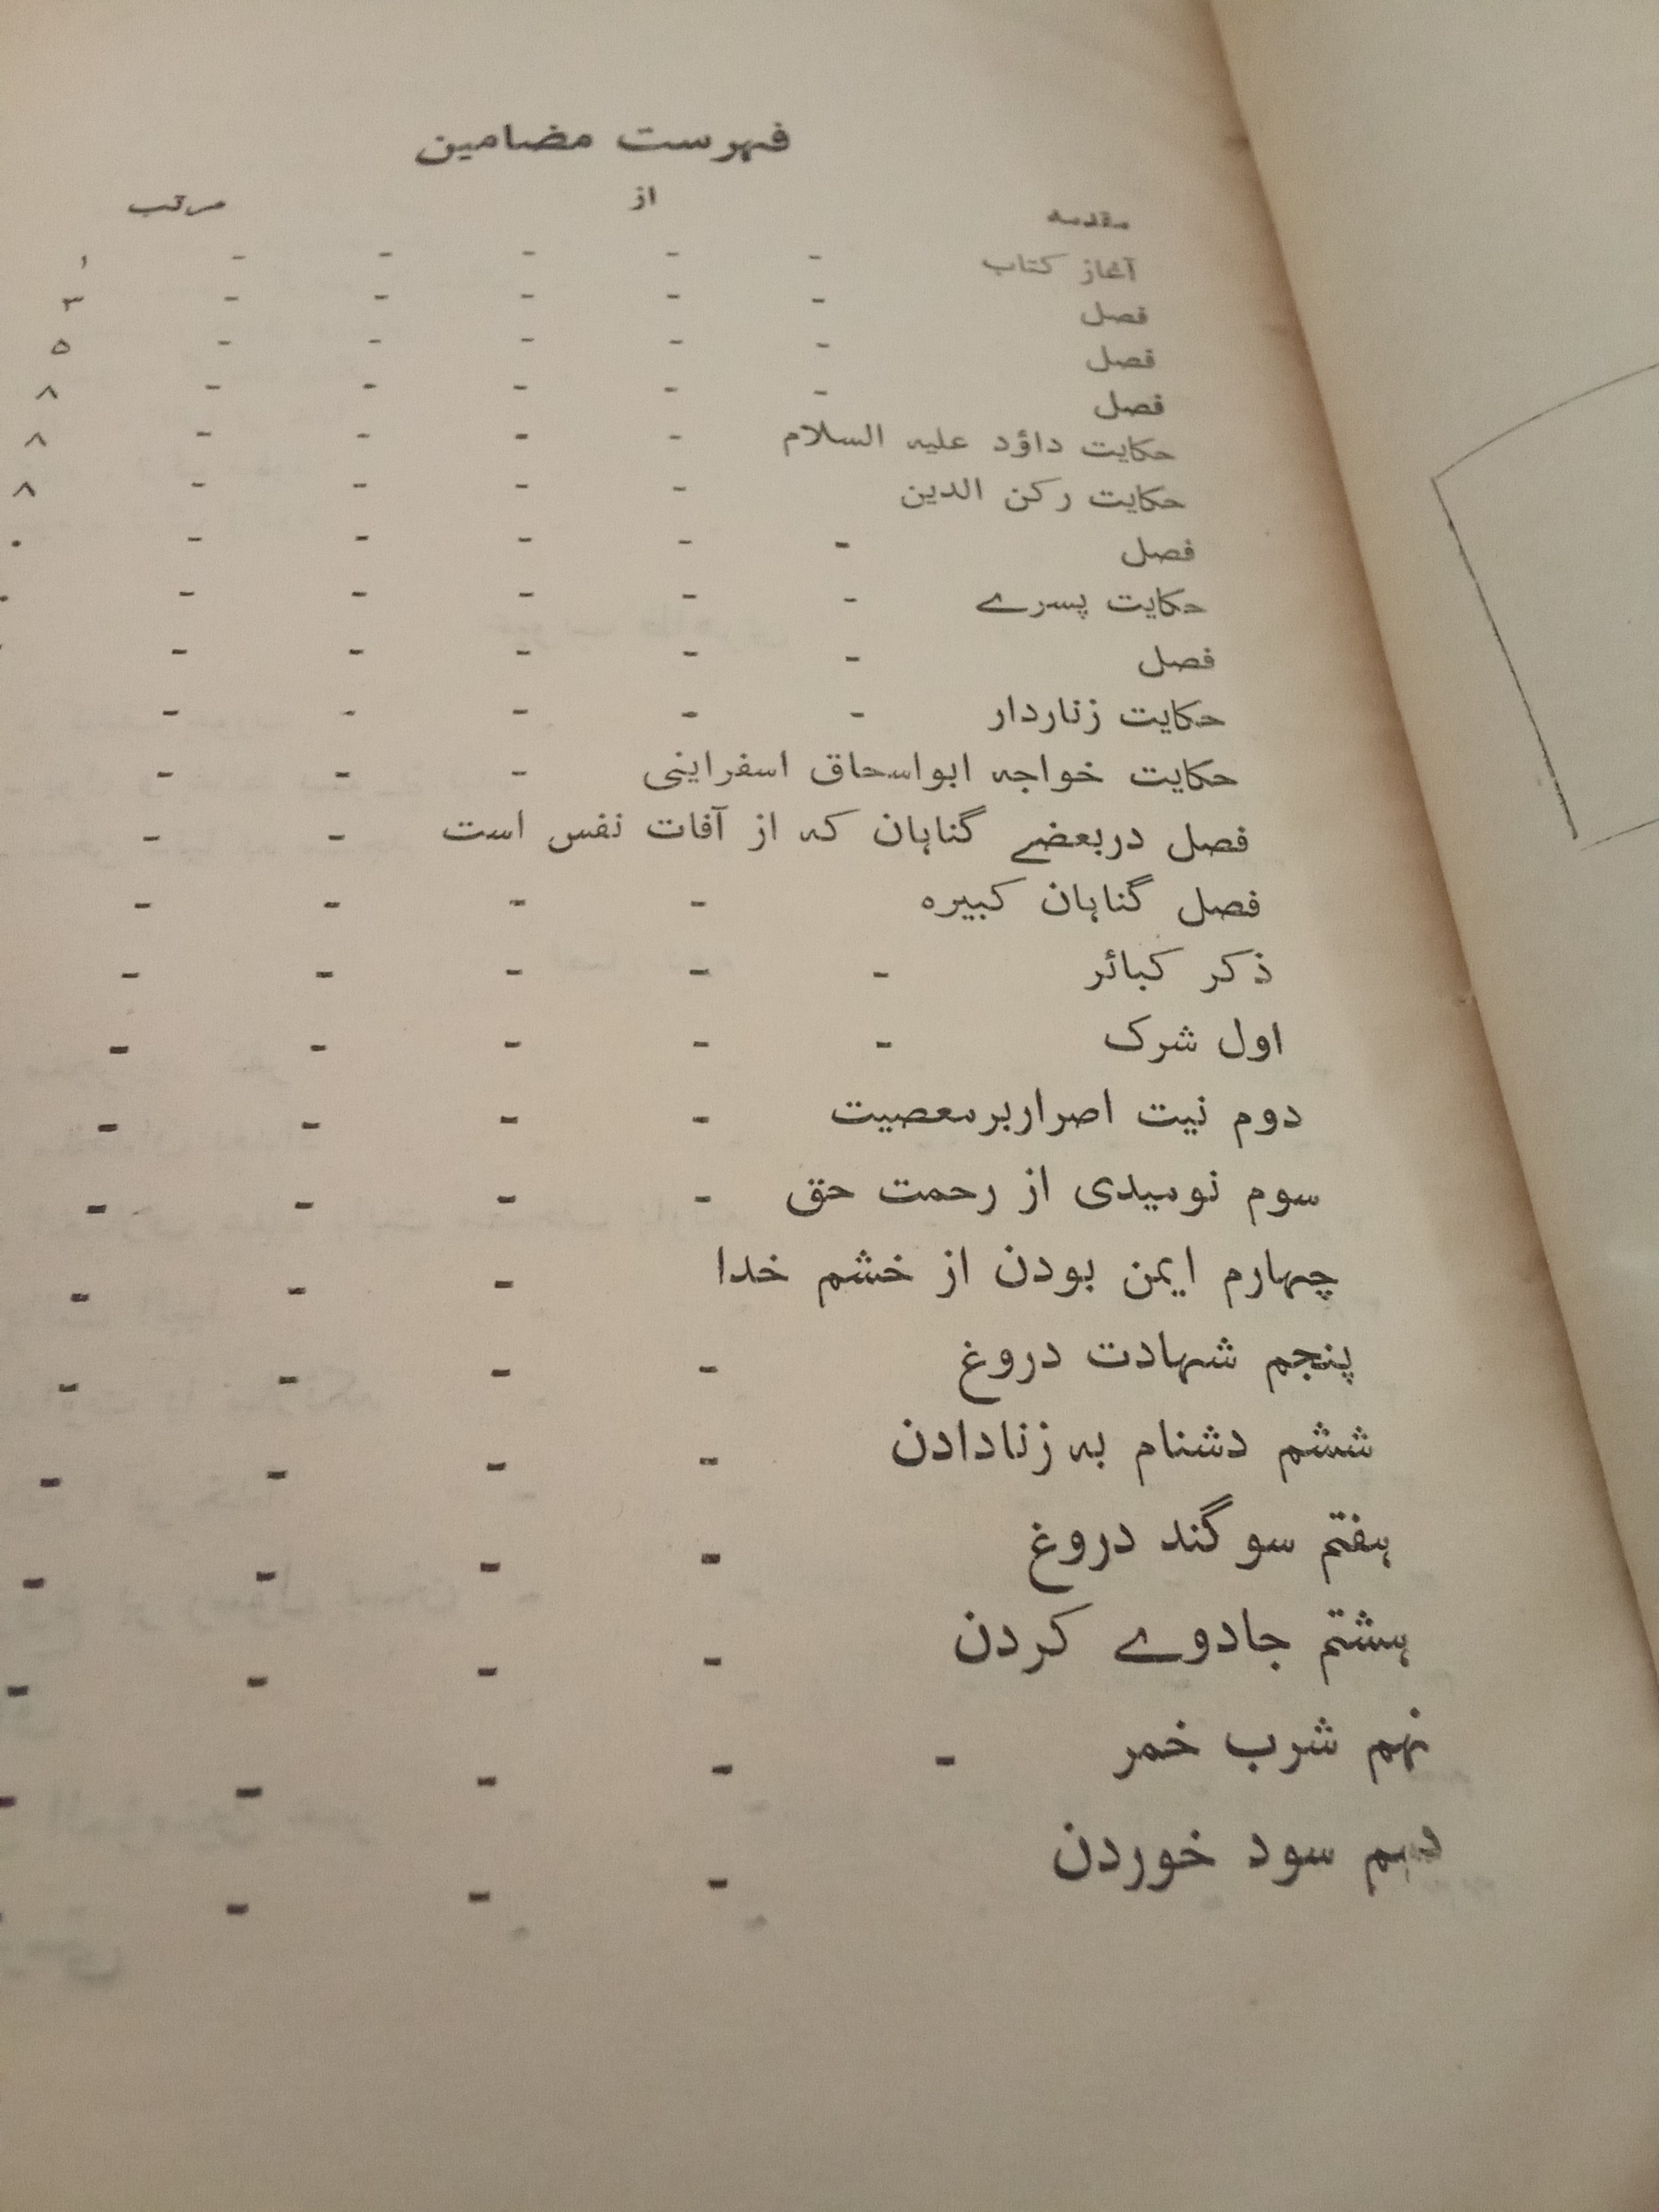 فہرست مضامین
مقدمہ از مرتب
آغاز کتاب - - - - - ۱
فصل - - - - - ۳
فصل - - - - - ۵
فصل - - - - - ۸
حکایت داؤد علیہ السلام - - - - ۸
حکایت رکن الدین - - - - ۸
فصل - - - - -
حکایت پسرے - - - - -
فصل - - - - -
حکایت زناردار - - - - -
حکایت خواجہ ابواسحاق اسفراینی - - -
فصل دربعضے گناہان کہ از آفات نفس است - -
فصل گناہان کبیرہ - - - -
ذکر کبائر - - - - -
اول شرک - - - - -
دوم نیت اصراربرمعصیت - - - -
سوم نومیدی از رحمت حق - - - -
چہارم ایمن بودن از خشم خدا - - -
پنجم شہادت دروغ - - - -
ششم دشنام بہ زنادادن - - - -
ہفتم سوگند دروغ - - - -
ہشتم جادوے کردن - - - -
نہم شرب خمر - - - - -
دہم سود خوردن - - -